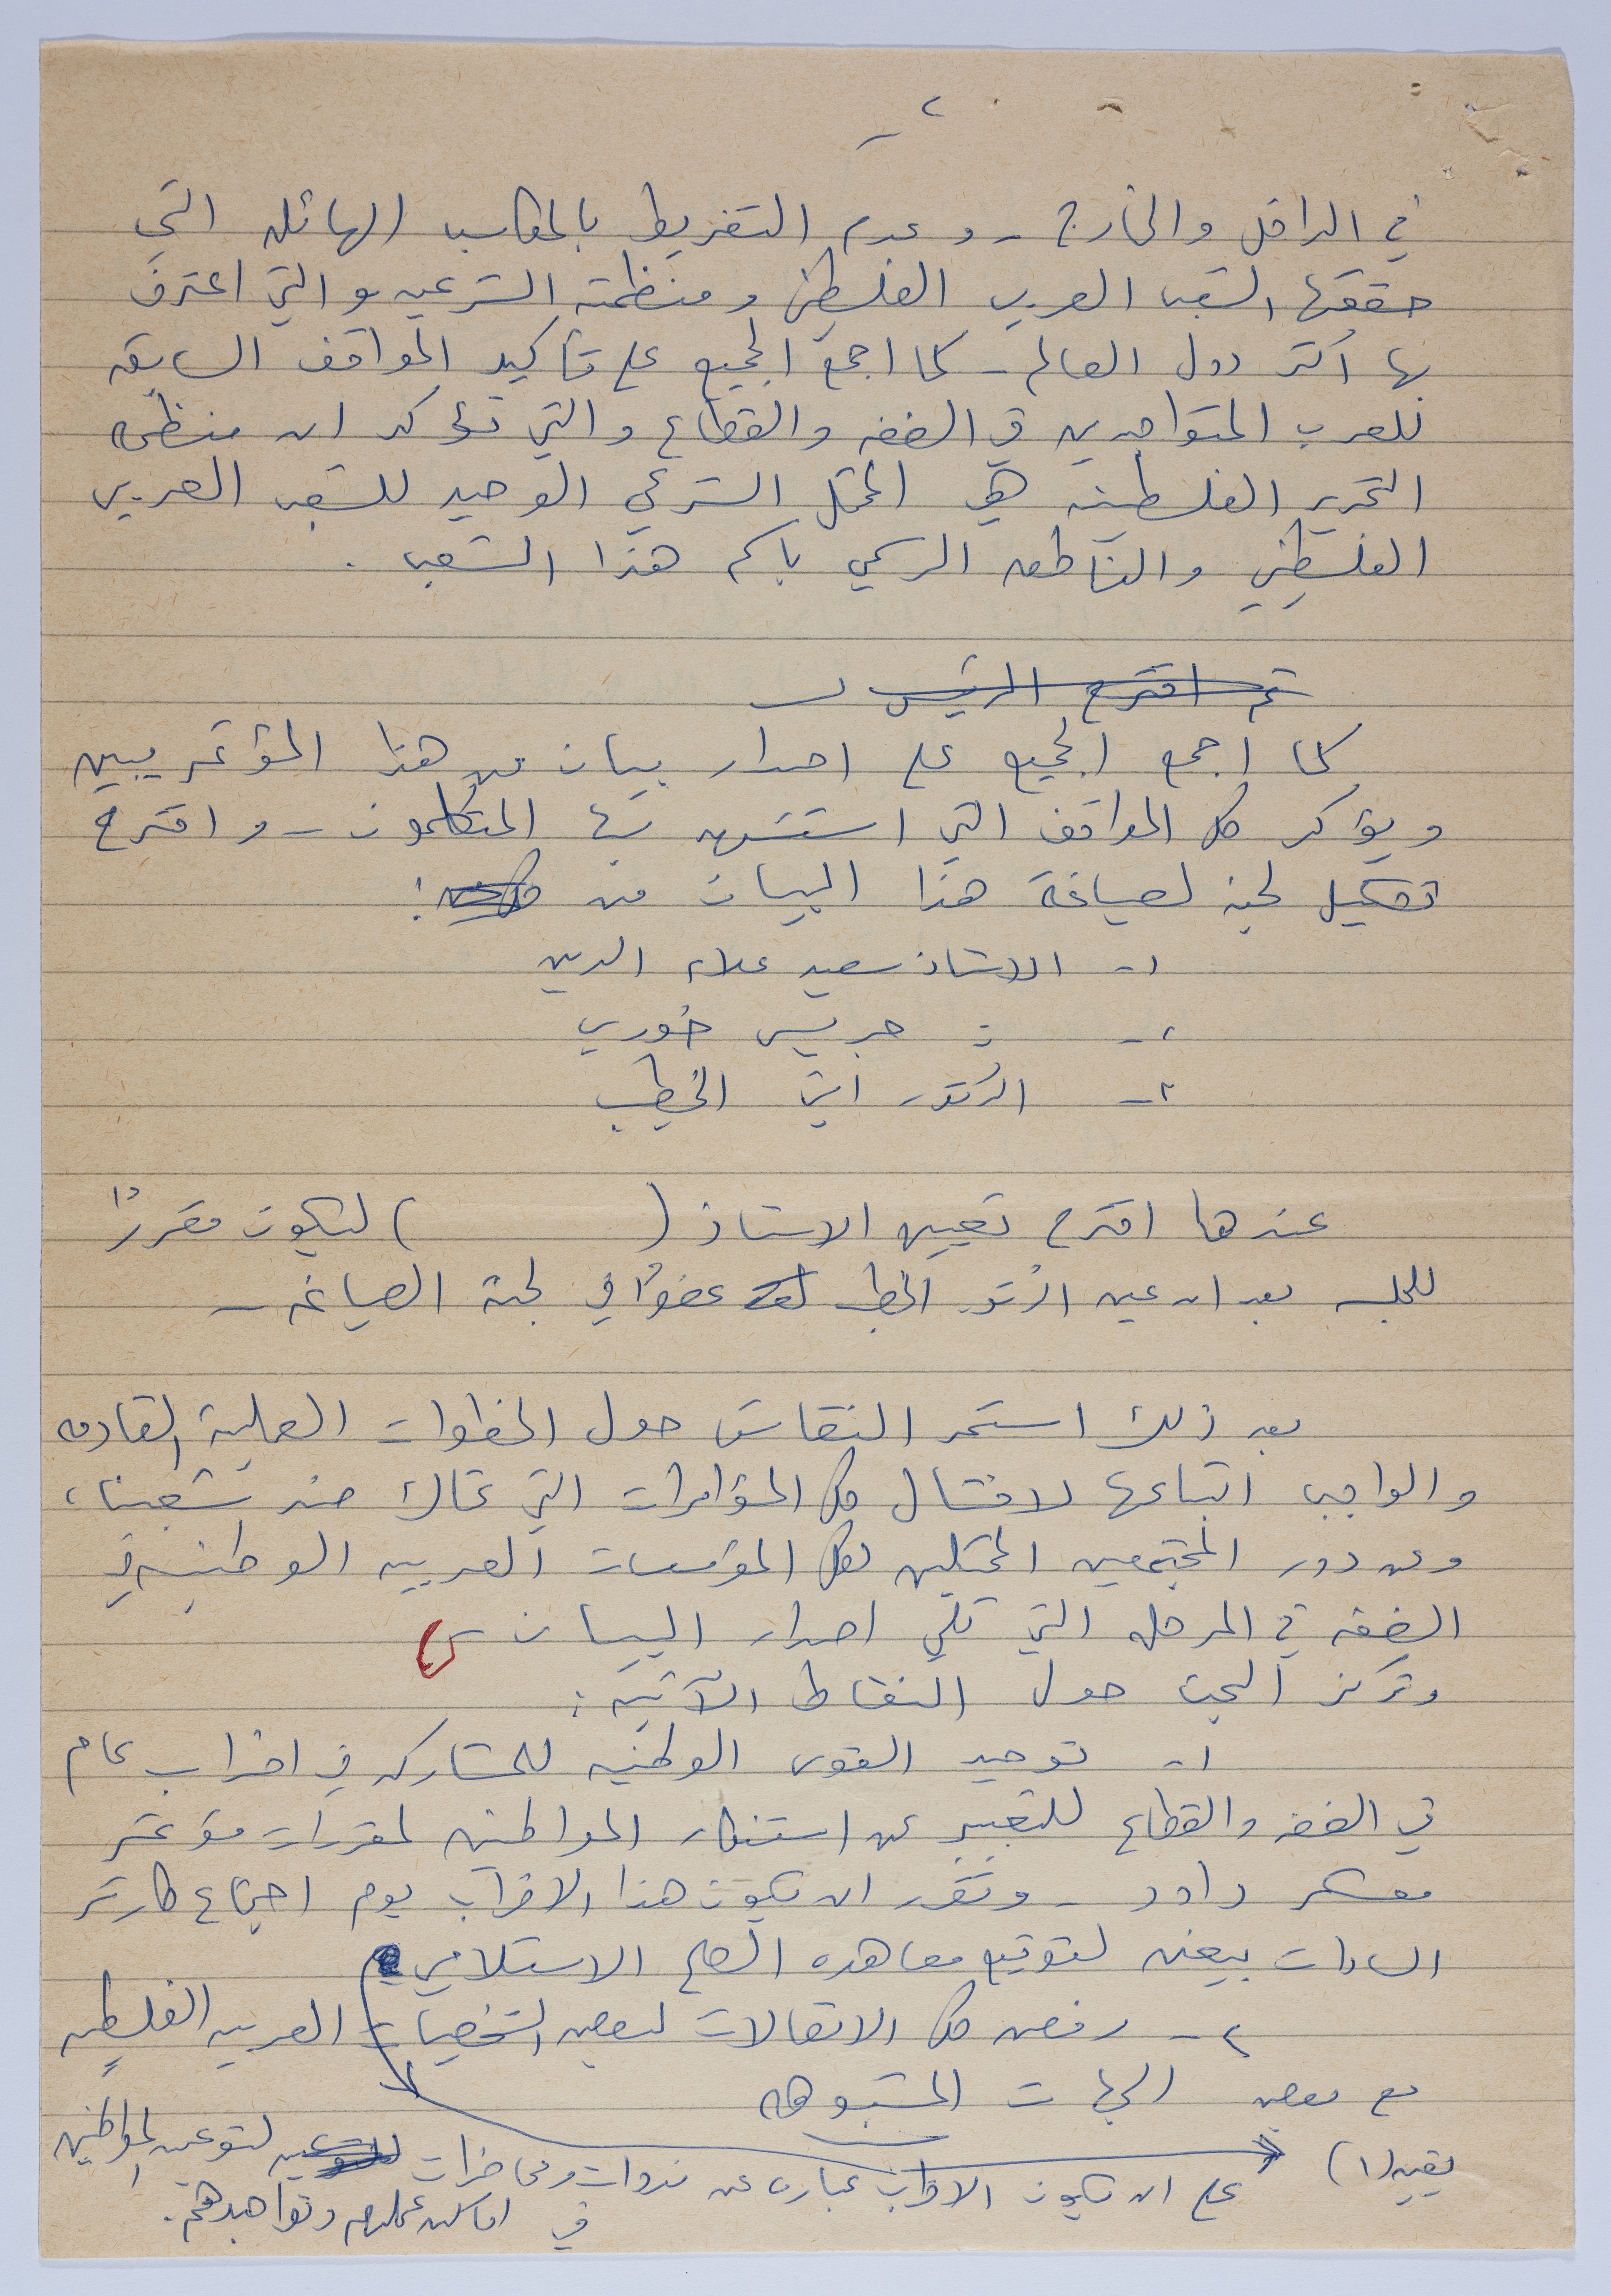 ٢
في الداخل والخارج - وعدم التفريط بالمكاسب الهائله التي
حققها الشعب العربي الفلسطيني ومنظمته الشرعيه والتي اعترف
بها اكثر دول العالم - كما اجمع الجميع على تأكيد المواقف السابقه
للعرب المتواجدين في الضفه والقطاع والتي تؤكد ان منظمة
التحرير الفلسطينيه هي الممثل الشرعي الوحيد للشعب العربي
الفلسطيني والناطق الرسمي باسم هذا الشعب .
ثم اقترح الرئيس
كما اجمع الجميع على اصدار بيان من هذا المؤتمر يبين
ويؤكد كل المواقف التي استشهد بها المتكلمون - واقترح
تشكيل لجنه لصياغة هذا البيان من :
١- الاستاذ سعيد علاء الدين
٢- = جريس خوري
٣- الدكتور امين الخطيب
عندها اقترح تعيين الاستاذ ( ) ليكون مقررًا
للجلسه بعد ان عين الدكتور الخطيب عضوًا في لجنة الصياغه -
بعد ذلك استمر النقاش حول الخطوات العملية القادمه
والواجب اتباعها لافشال كل المؤامرات التي تحاك ضد شعبنا،
وعن دور المجتمعين الممثلين لكل المؤسسات العربيه الوطنيه في
الضفه في المرحله التي تلي اصدار البيان -
وتركز البحث حول النقاط الآتيه :
١- توحيد القوى الوطنيه للمشاركه في اضراب عام
في الضفه والقطاع للتعبير عن استنكار المواطنين لمقررات مؤتمر
معسكر داود - وتقرر ان يكون هذا الاضراب يوم اجتماع كارتر
السادات بيغن لتوقيع معاهده الصلح الاستلامي
٢- رفض كل الاتصالات لبعض الشخصيات العربيه الفلسطينيه
مع بعض الجهات المشبوهه
بقيه (١) على ان يكون الاضراب عباره عن ندوات ومحاضرات لتوعية المواطنين
في اماكن عملهم وتواجدهم .